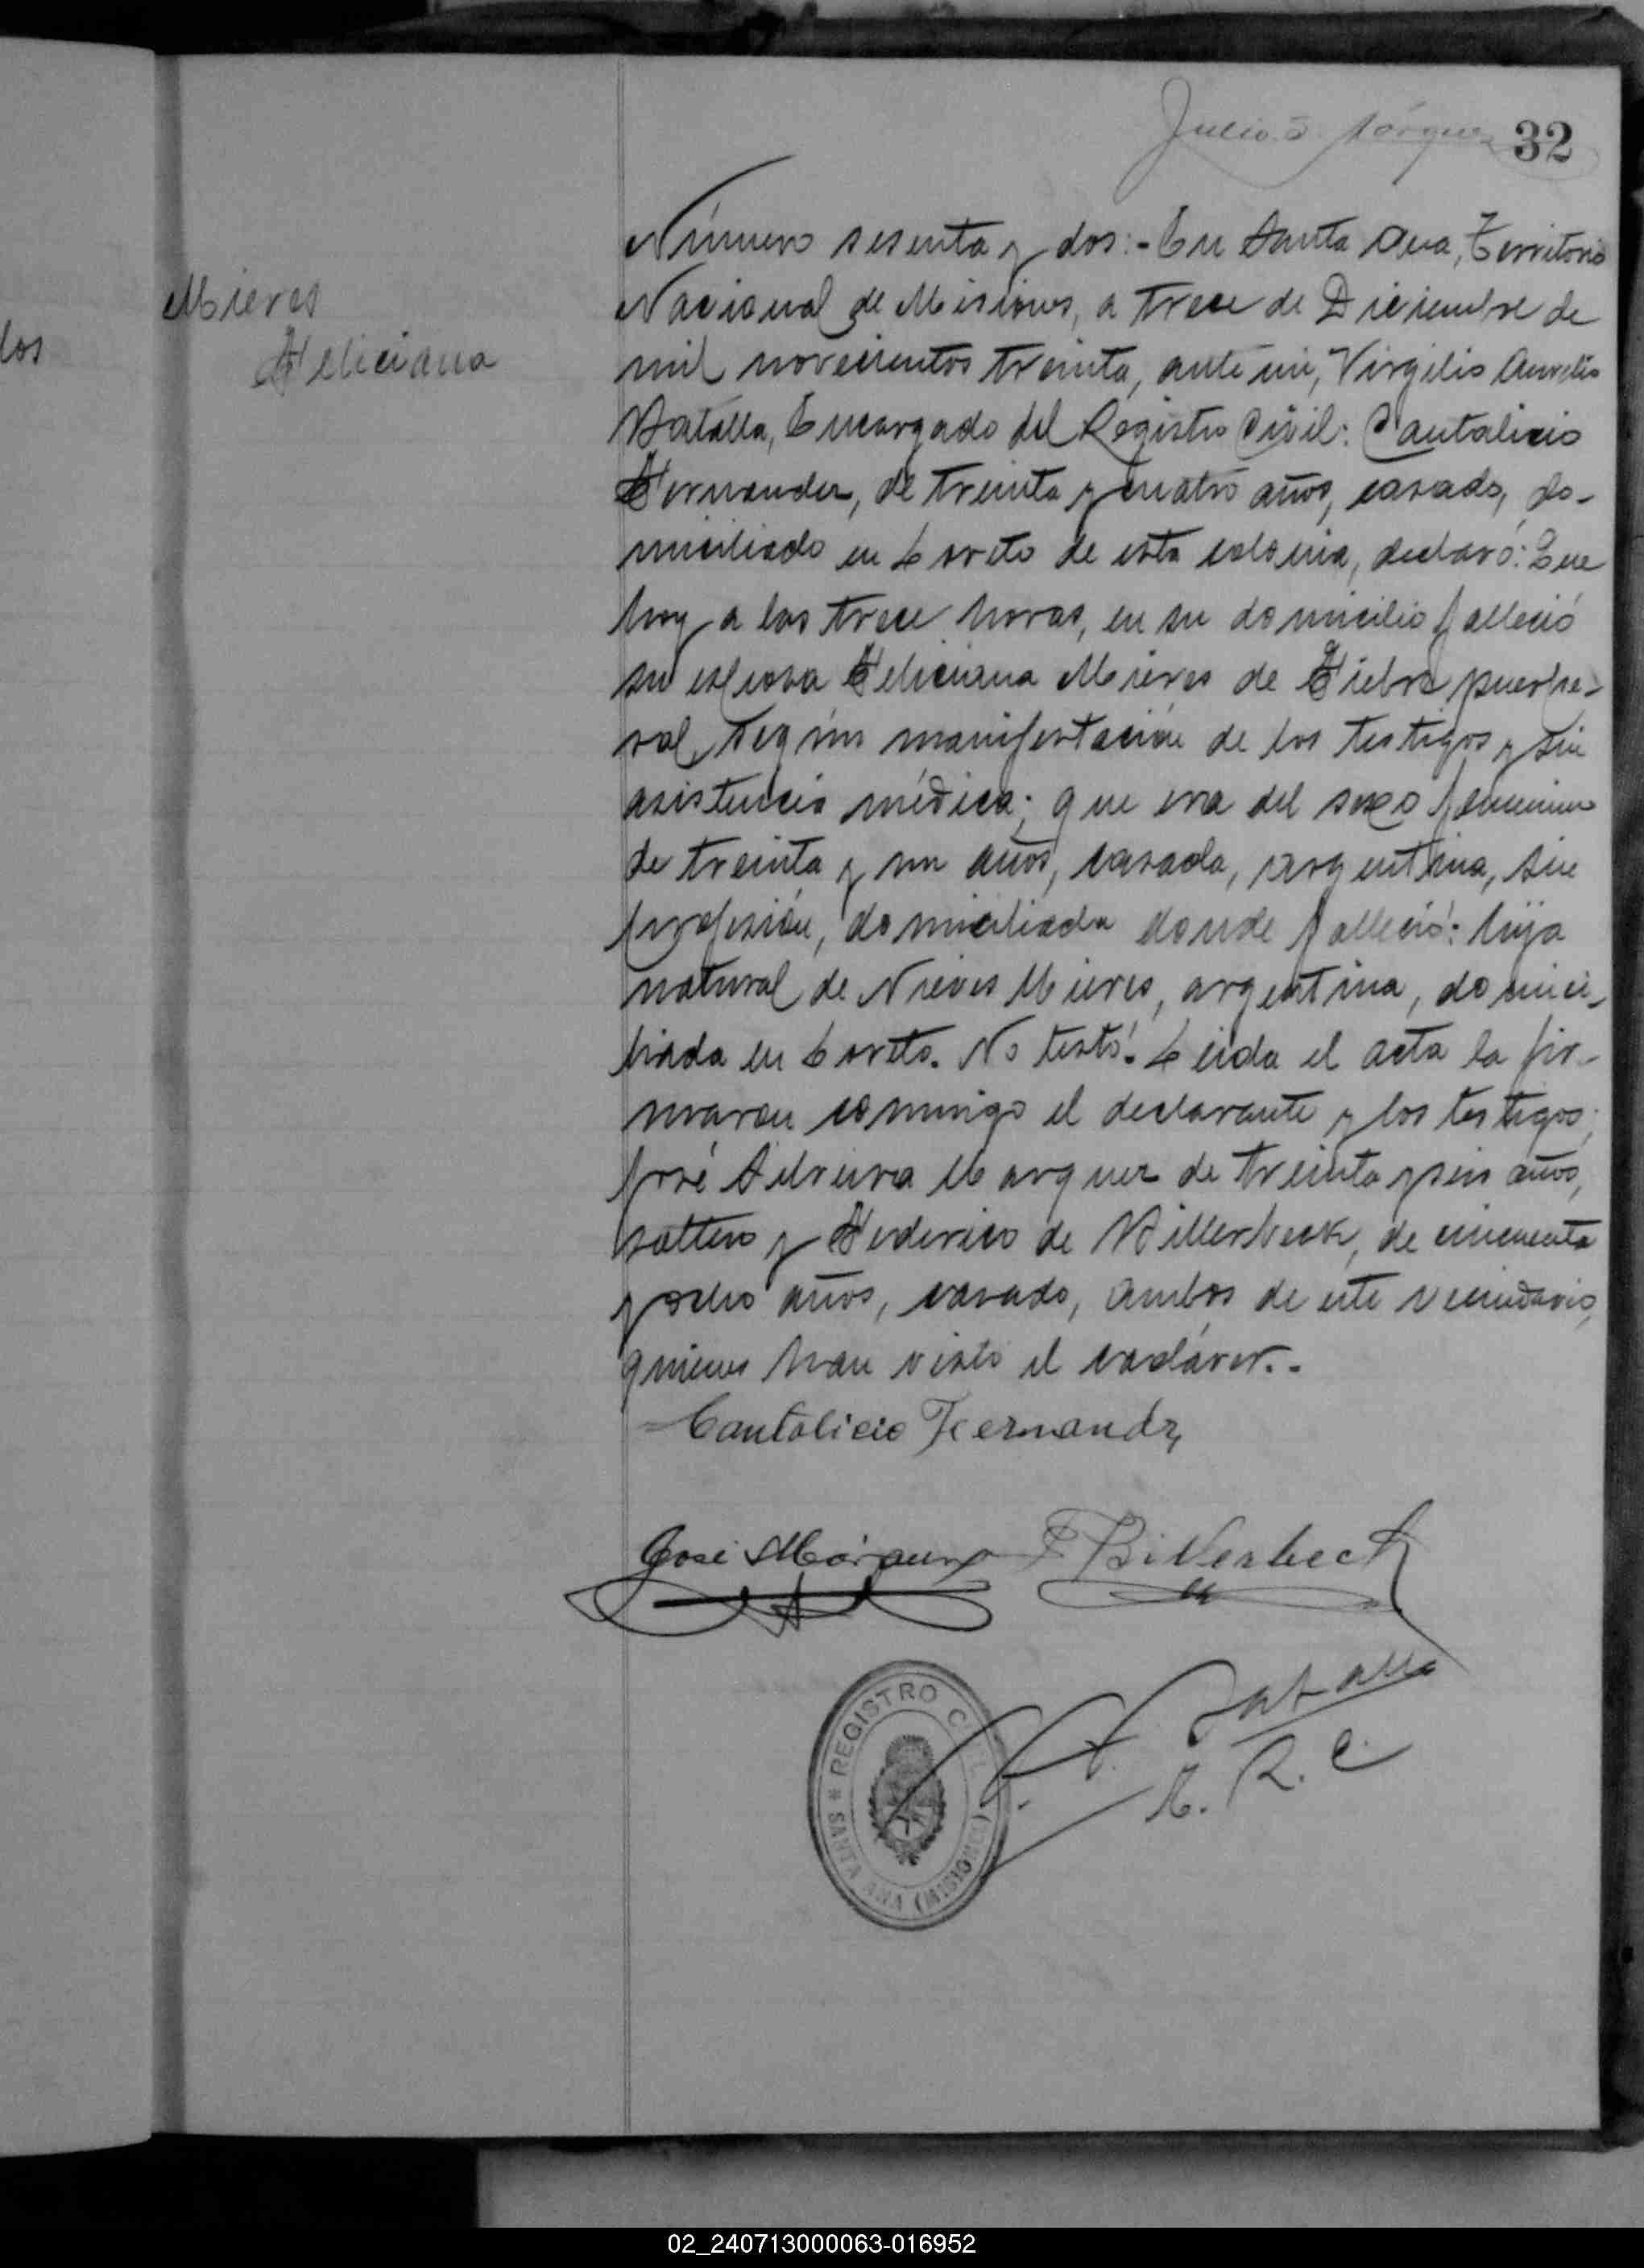 32
Mieres
Feliciana
los
Número sesenta y dos:- En Santa Ana, Territorio
Nacional de Misiones, a trece de Diciembre de
mil novecientos treinta, ante mi, Virgilio Aurelio
Batalla, Encargado del Registro Civil: Cantalicio
Fernandez, de treinta y cuatro años, casado, do-
miciliado en Loreto de esta colonia, declaró: Que
hoy a las trece horas, en su domicilio falleció
su esposa Feliciana Mieres de Fiebre puerpe-
ral, según manifestación de los testigos y sin
asistencia médica; que era del sexo femenino
de treinta y un años, casada, argentina, sin
profesión, domiciliada donde falleció: hija
natural de Nieves Mieres, argentina, domici-
liada en Loreto. No testó. Leida el acta la fir-
maron conmigo el declarante y los testigos;
José Silveira Marquez de treinta y seis años,
soltero y Federico de Billerbeck, de cincuenta
y ocho años, casado, ambos de este vecindario,
quienes han visto el cadáver.-
Cantalicio Fernandz
José Márquez F Billerbeck
Batalla
E. R. C.
REGISTRO CIVIL
* SANTA ANA (MISIONES)
02_240713000063-016952